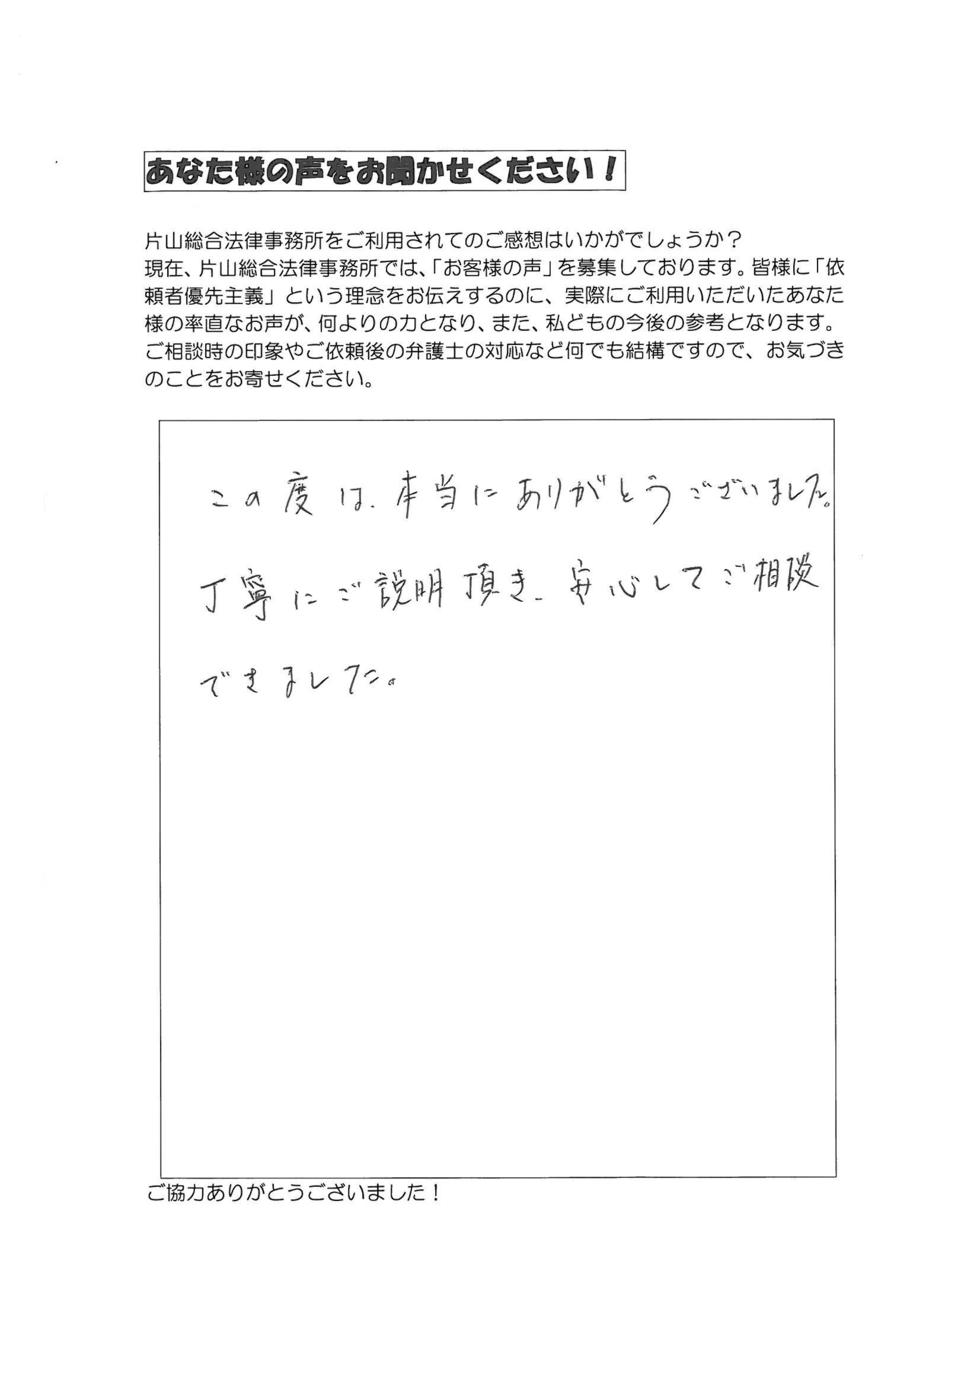 あなた様の声をお聞かせください！
片山総合法律事務所をご利用されてのご感想はいかがでしょうか？
現在、片山総合法律事務所では、「お客様の声」を募集しております。皆様に「依
頼者優先主義」という理念をお伝えするのに、実際にご利用いただいたあなた
様の率直なお声が、何よりの力となり、また、私どもの今後の参考となります。
ご相談時の印象やご依頼後の弁護士の対応など何でも結構ですので、お気づき
のことをお寄せください。
この度は、本当にありがとうございました。
丁寧にご説明頂き、安心してご相談
できました。
ご協力ありがとうございました！